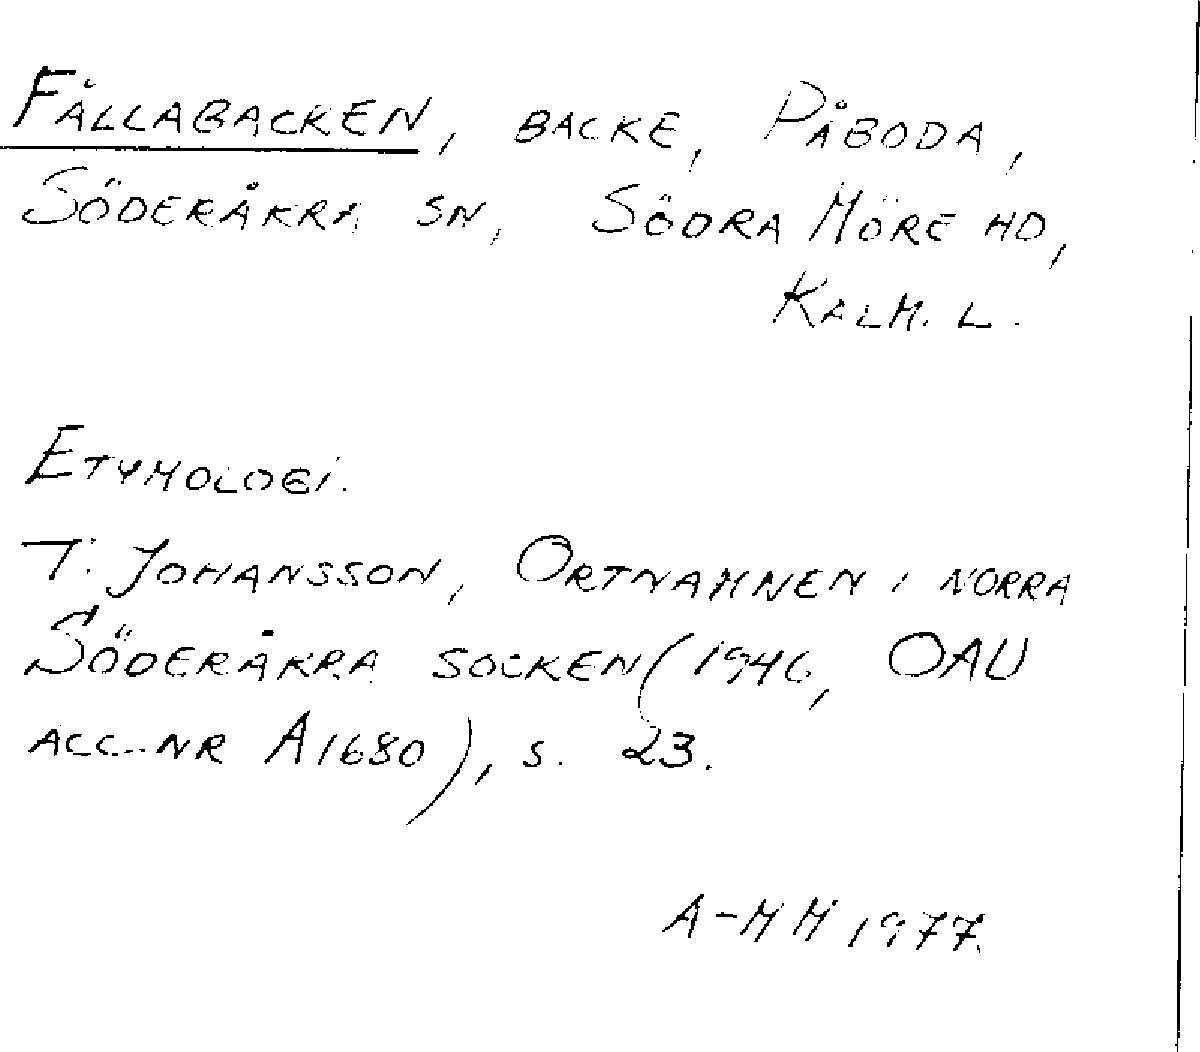 Fållabacken, backe, Påboda,
Söderåkra sn, Södra Möre hd,
Kalm. l.
Etymologi.
T. Johansson, Ortnamnen i norra
Söderåkra socken (1946, OAU
acc.-nr A1680), s. 23.
A-MM 1977.